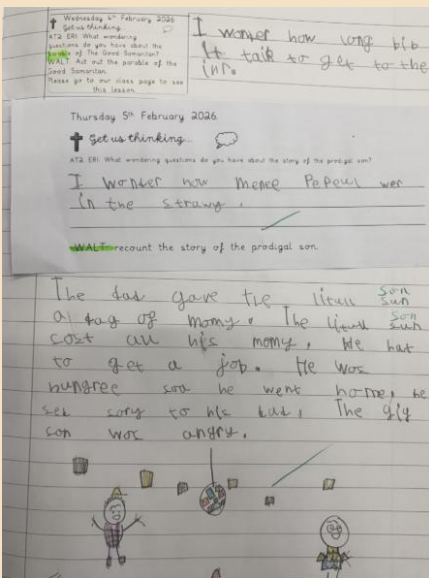 Wednesday 4th February 2026
Get us thinking...
AT2 ER1 What wondering
questions do you have about the
parable of The Good Samaritan?
WALT: Act out the parable of the
Good Samaritan.
Please go to our class page to see
this lesson.
I wonter how long bib
it taik to get to the
inn.
Thursday 5th February 2026
Get us thinking...
AT2 ER1 What wondering questions do you have about the story of the prodigal son?
I wonter how menee Pepeul wer
in the strawy.
WALT: recount the story of the prodigal son.
The dad gave the litull sun son
a tag of momy. The litull sun son
cost all his momy. He hat
to get a jop. He wos
hungree sou he went home, he
sed sory to his dad. The
son wos angry.